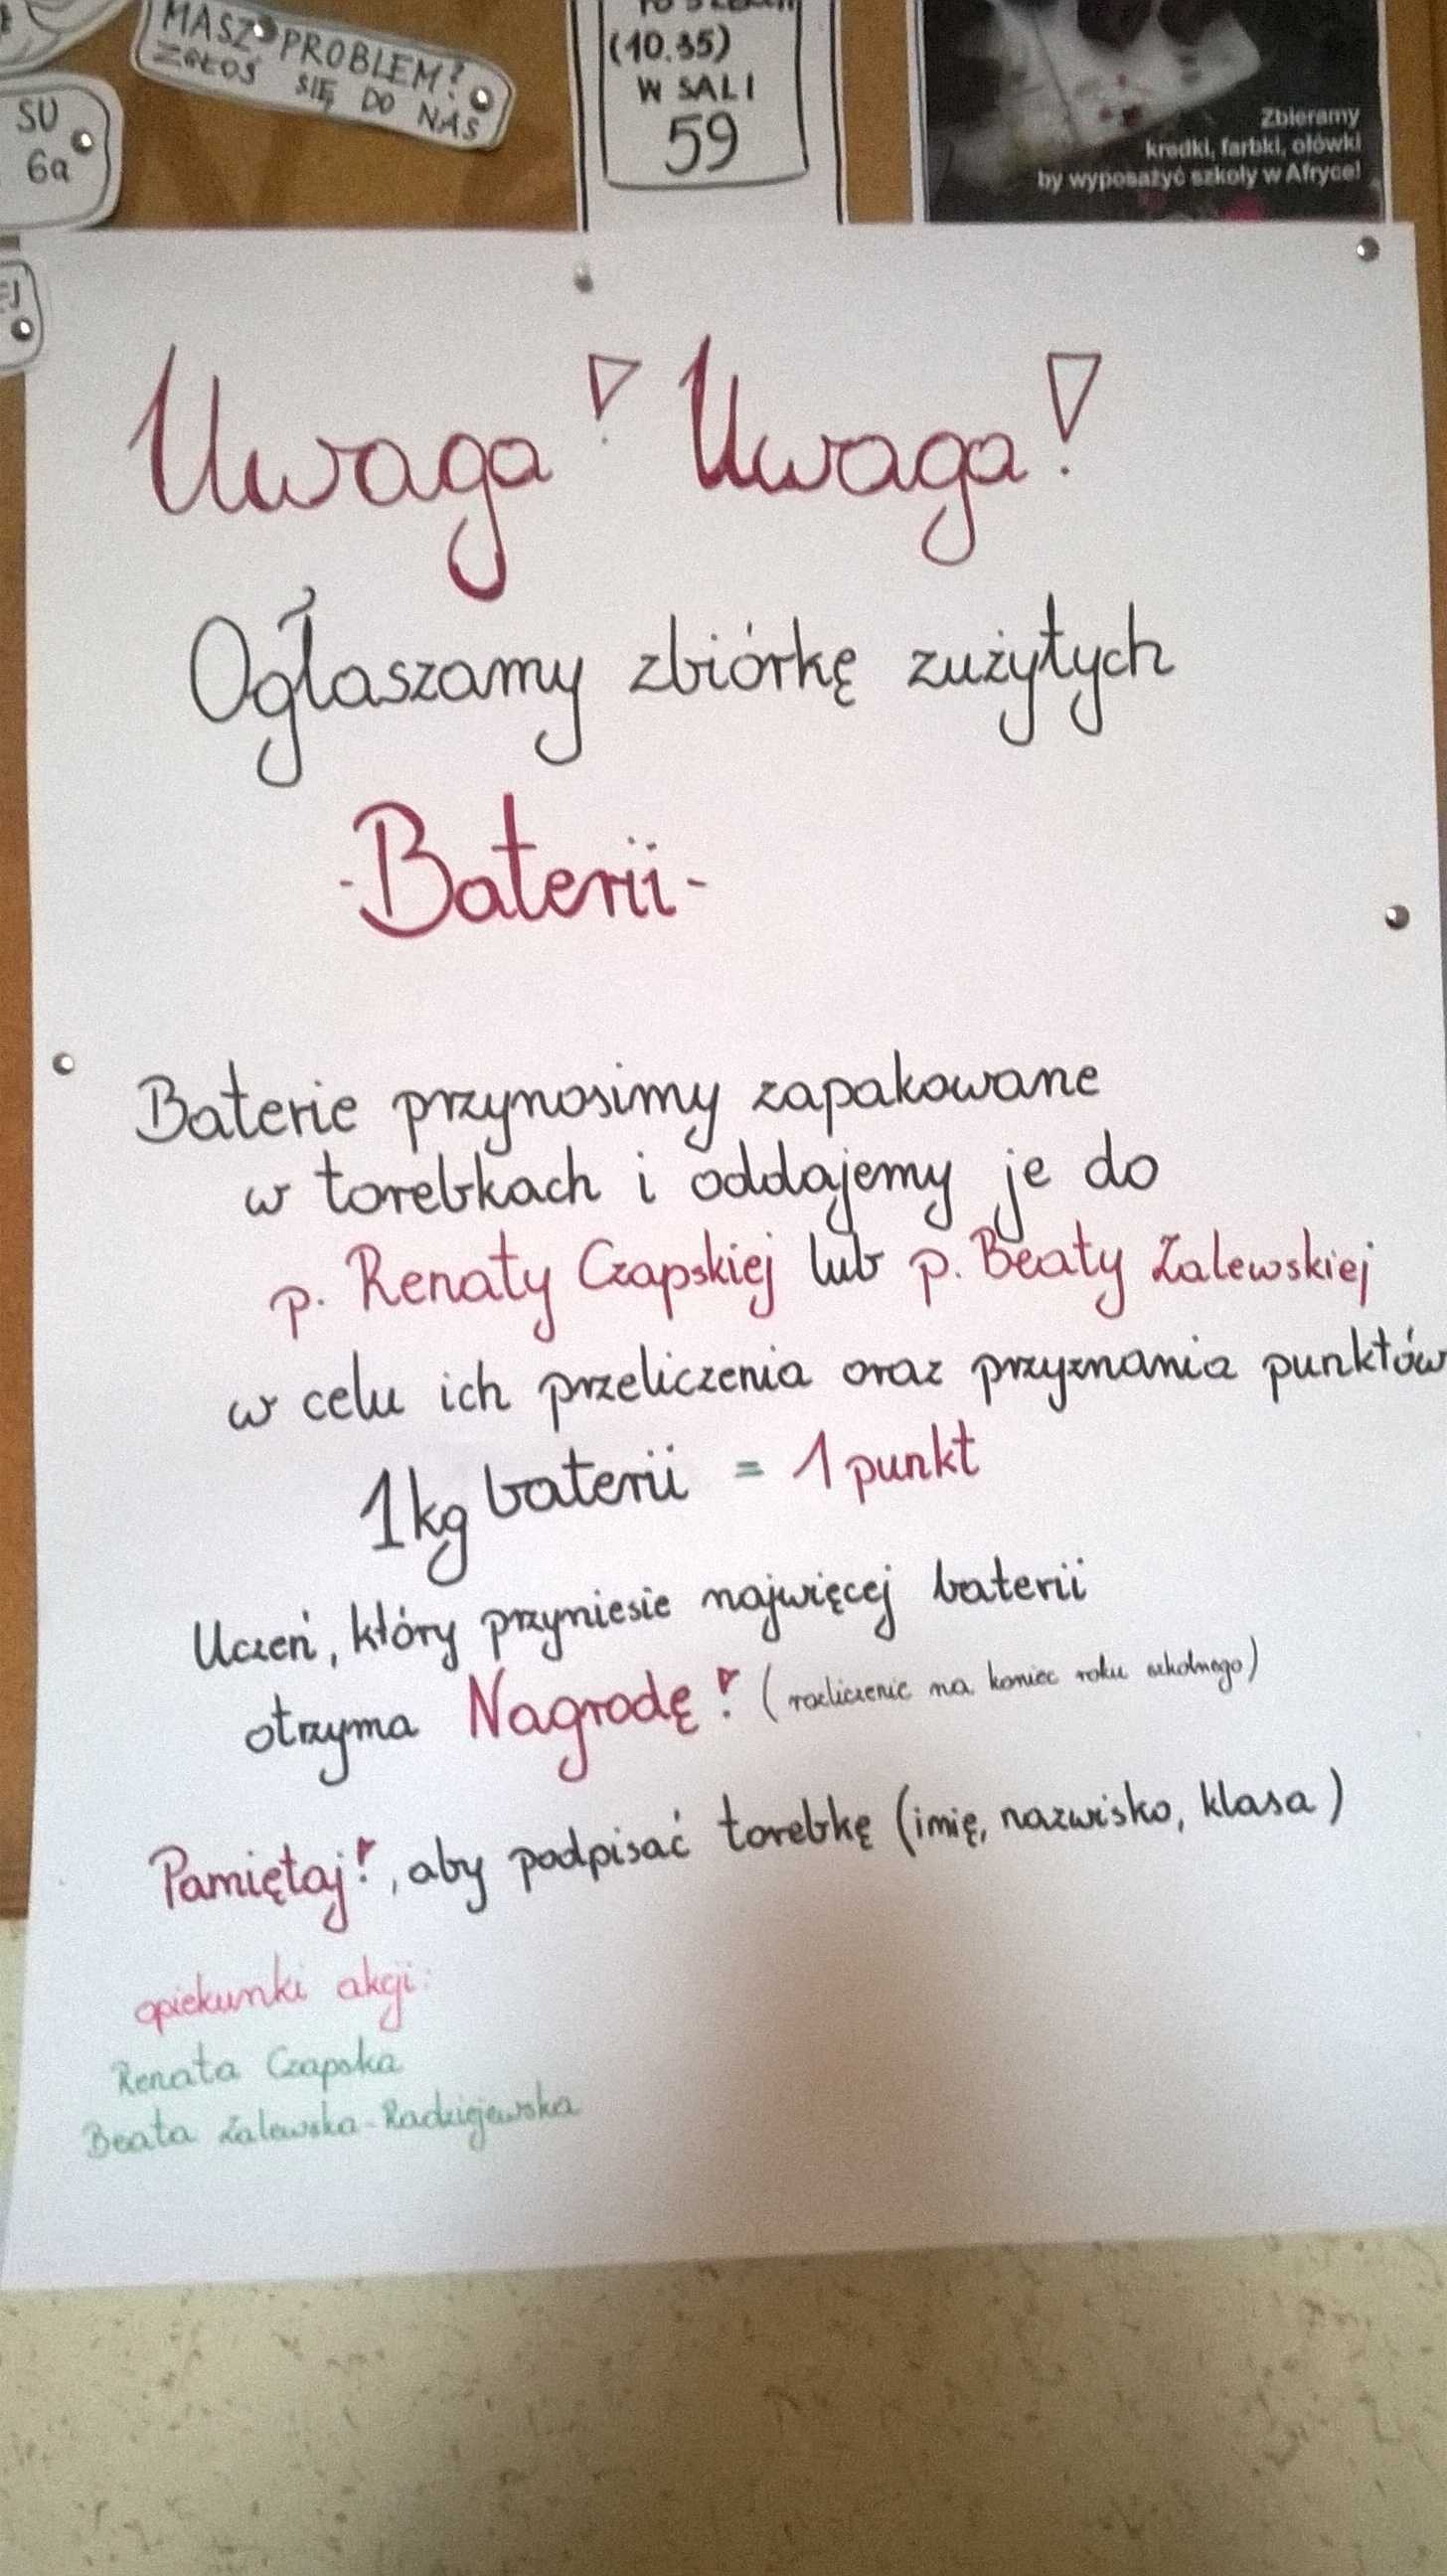 MASZ PROBLEM?
ZGŁOŚ SIĘ DO NAS
SU
6a
(10.35)
W SALI
59
Zbieramy
kredki, farbki, ołówki
by wyposażyć szkoły w Afryce!
EJ
Uwaga! Uwaga!
Ogłaszamy zbiórkę zużytych
-Baterii-
Baterie przynosimy zapakowane
w torebkach i oddajemy je do
p. Renaty Czapskiej lub p. Beaty Zalewskiej
w celu ich przeliczenia oraz przyznania punktów
1kg baterii = 1 punkt
Uczeń, który przyniesie najwięcej baterii
otrzyma Nagrodę! (rozliczenie na koniec roku szkolnego)
Pamiętaj!, aby podpisać torebkę (imię, nazwisko, klasa)
opiekunki akcji:
Renata Czapska
Beata Zalewska-Radziejewska